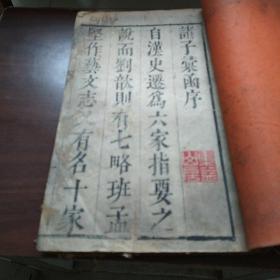 諸子彚函序
自漢史遷爲六家指要之
說而劉歆則有七略班孟
堅作藝文志又有名十家